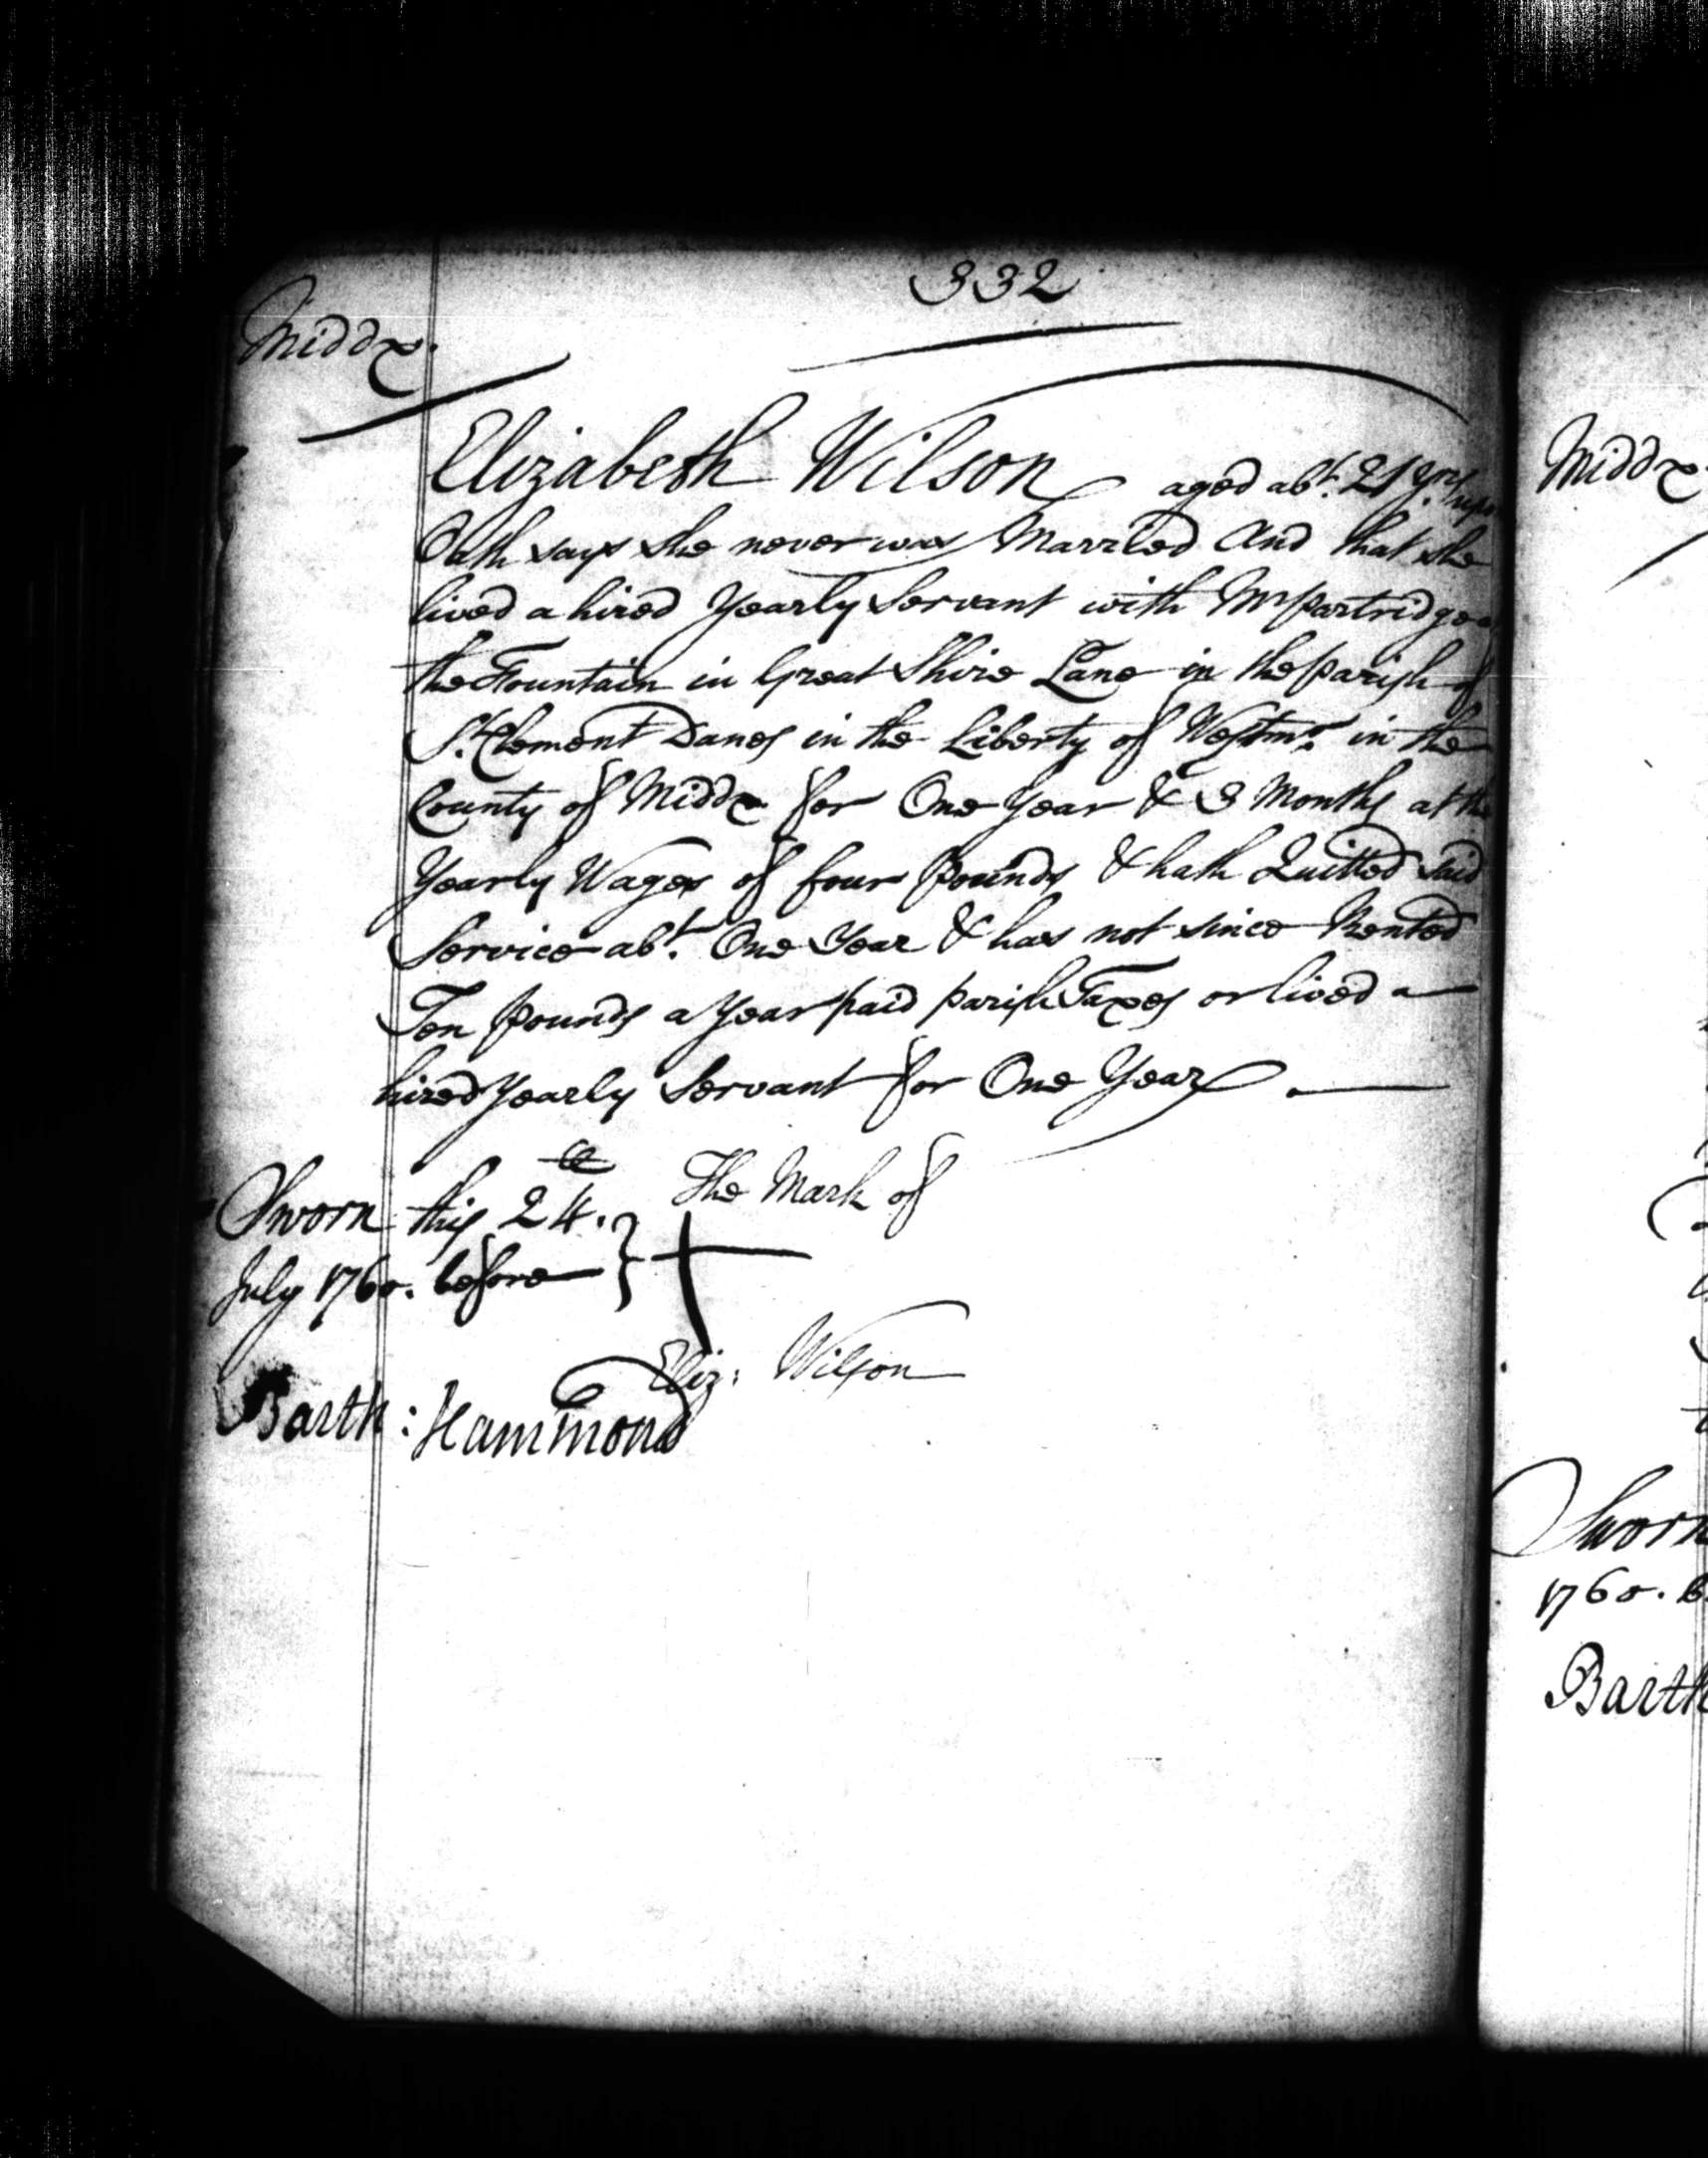 332
Middx.
Elizabeth Wilson aged abt. 21 Yrs upo
Oath says she never was Married And that she
lived a hired Yearly Servant with Mr Partridge
the Fountain in Great Shire Lane in the Parish of
St. Clement Danes in the Liberty of Westmr. in the
County of Middx for One Year & 3 Months at the
Yearly Wages of four Pounds & hath Quitted said
Service abt. One Year & has not since Rented
Ten Pounds a Year paid parish Taxes or lived a
hired Yearly Servant for One Year
Sworn this 24th.
July 1760. before
The Mark of
Eliz: Wilson
Barth: Hammond
Middx
Sworn
1760. b
Barth